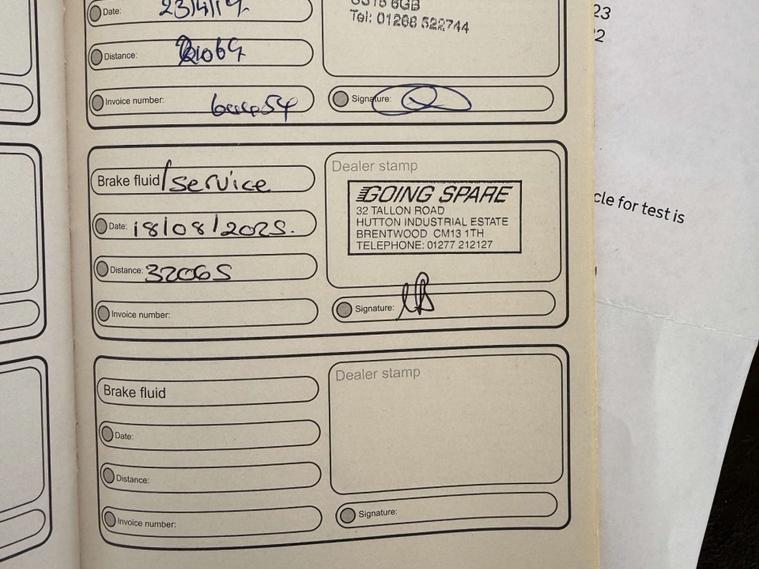 23
2
Date: 23/4/19.
SS15 6GB
Tel: 01268 522744
Distance: 21069
Invoice number:
Signature:
cle for test is
Brake fluid/service
Dealer stamp
GOING SPARE
32 TALLON ROAD
HUTTON INDUSTRIAL ESTATE
BRENTWOOD CM13 1TH
TELEPHONE: 01277 212127
Date: 18/08/2025.
Distance: 32065
Invoice number:
Signature:
Brake fluid
Dealer stamp
Date:
Distance:
Invoice number:
Signature: